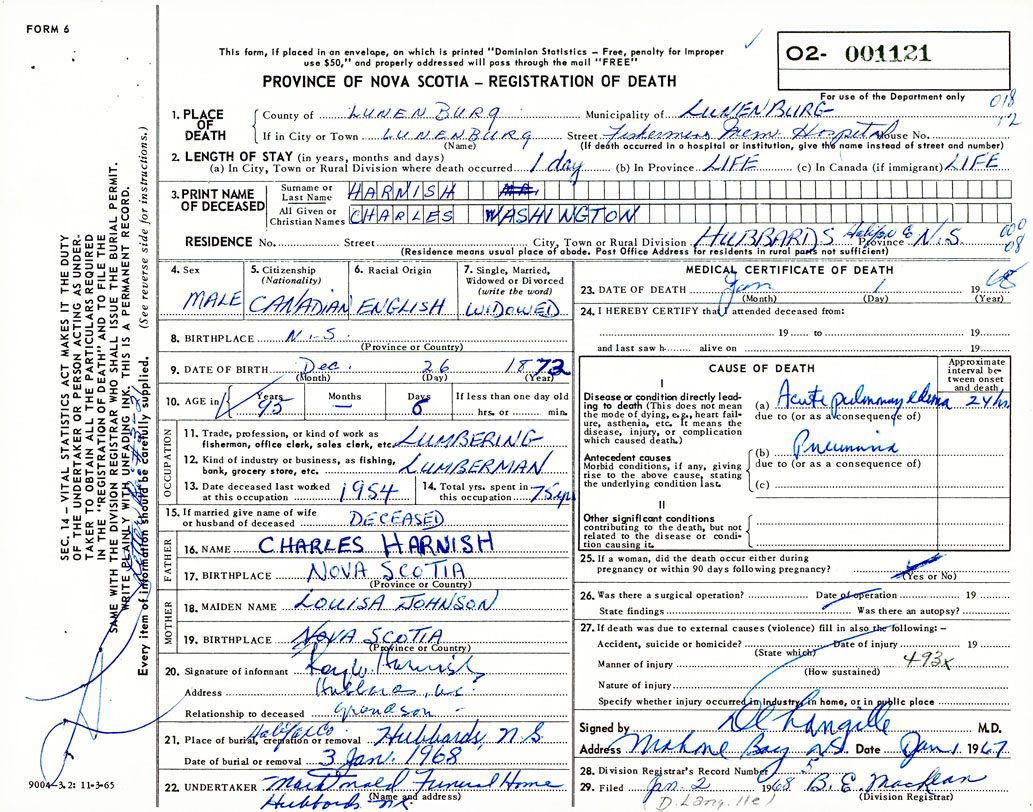 FORM 6
This form, if placed in an envelope, on which is printed "Dominion Statistics – Free, penalty for improper
use $50," and properly addressed will pass through the mail "FREE"
PROVINCE OF NOVA SCOTIA – REGISTRATION OF DEATH
O2- 001121
For use of the Department only
018
12
1. PLACE OF DEATH
County of LUNENBURG Municipality of LUNENBURG
If in City or Town LUNENBURG Street Fishermens Mem. Hospital House No.
(Name) (If death occurred in a hospital or institution, give the name instead of street and number)
2. LENGTH OF STAY (in years, months and days)
(a) In City, Town or Rural Division where death occurred 1 day (b) In Province LIFE (c) In Canada (if immigrant) LIFE
3. PRINT NAME OF DECEASED
Surname or Last Name HARNISH
All Given or Christian Names CHARLES WASHINGTON
RESIDENCE No. Street City, Town or Rural Division HUBBARDS Halifax Co Province N.S.
000
08
(Residence means usual place of abode. Post Office Address for residents in rural parts not sufficient)
4. Sex MALE
5. Citizenship (Nationality) CANADIAN
6. Racial Origin ENGLISH
7. Single, Married, Widowed or Divorced (write the word) WIDOWED
8. BIRTHPLACE N.S.
(Province or Country)
9. DATE OF BIRTH Dec. 26 1872
(Month) (Day) (Year)
10. AGE in Years 95 Months – Days 6 If less than one day old
hrs. or min.
OCCUPATION
11. Trade, profession, or kind of work as fisherman, office clerk, sales clerk, etc. LUMBERING
12. Kind of industry or business, as fishing, bank, grocery store, etc. LUMBERMAN
13. Date deceased last worked at this occupation 1954
14. Total yrs. spent in this occupation 75 yrs
15. If married give name of wife or husband of deceased DECEASED
FATHER
16. NAME CHARLES HARNISH
17. BIRTHPLACE NOVA SCOTIA
(Province or Country)
MOTHER
18. MAIDEN NAME LOUISA JOHNSON
19. BIRTHPLACE NOVA SCOTIA
(Province or Country)
20. Signature of informant Harnish
Address Hubbards, N.S.
Relationship to deceased grandson
21. Place of burial, cremation or removal Halifax Co Hubbards, N.S
Date of burial or removal 3 Jan. 1968
22. UNDERTAKER Funeral Home
(Name and address)
Hubbards N.S.
MEDICAL CERTIFICATE OF DEATH
23. DATE OF DEATH Jan 1 1968
(Month) (Day) (Year)
24. I HEREBY CERTIFY that I attended deceased from:
19 to 19
and last saw h alive on 19
CAUSE OF DEATH
Approximate interval between onset and death
I
Disease or condition directly leading to death (This does not mean the mode of dying, e.g., heart failure, asthenia, etc. It means the disease, injury, or complication which caused death.)
(a) Acute pulmonary edema 24 hr.
due to (or as a consequence of)
Antecedent causes
Morbid conditions, if any, giving rise to the above cause, stating the underlying condition last.
(b) Pneumonia
due to (or as a consequence of)
(c)
II
Other significant conditions contributing to the death, but not related to the disease or condition causing it.
25. If a woman, did the death occur either during pregnancy or within 90 days following pregnancy?
(Yes or No)
26. Was there a surgical operation? Date of operation 19
State findings Was there an autopsy?
27. If death was due to external causes (violence) fill in also the following: –
Accident, suicide or homicide? Date of injury 19
(State which)
Manner of injury 493x
(How sustained)
Nature of injury
Specify whether injury occurred in industry, in home, or in public place
Signed by Langille M.D.
Address Mahone Bay N.S. Date Jan 1 1967
28. Division Registrar's Record Number 5
29. Filed Jan. 2 1968 B. E. MacLean
(Division Registrar)
D. Langille)
SEC. 14 – VITAL STATISTICS ACT MAKES IT THE DUTY
OF THE UNDERTAKER OR PERSON ACTING AS UNDER-
TAKER TO OBTAIN ALL THE PARTICULARS REQUIRED
IN THE "REGISTRATION OF DEATH" AND TO FILE THE
SAME WITH THE DIVISION REGISTRAR WHO SHALL ISSUE THE BURIAL PERMIT.
WRITE PLAINLY WITH UNFADING INK. THIS IS A PERMANENT RECORD.
Every item of information should be carefully supplied. (See reverse side for instructions.)
9004-3.2: 11-3-65